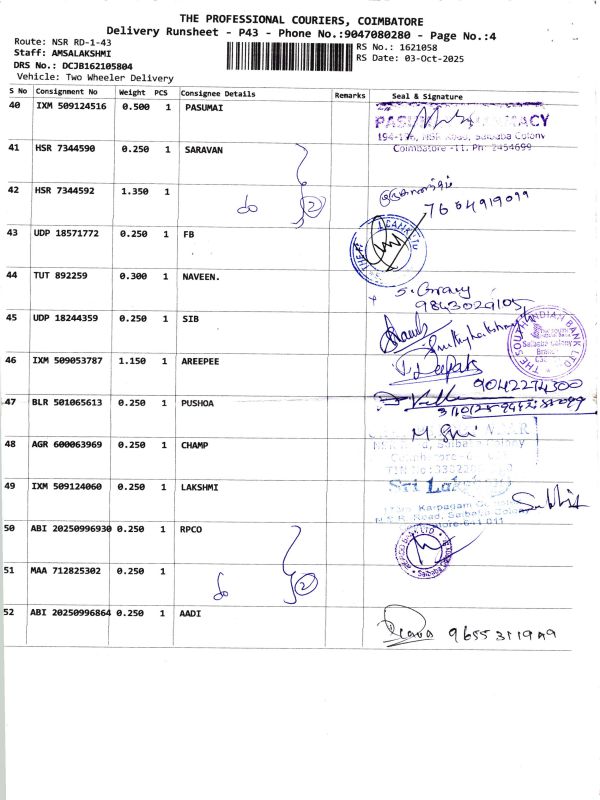 THE PROFESSIONAL COURIERS, COIMBATORE
Delivery Runsheet - P43 - Phone No.:9047080280 - Page No.:4
Route: NSR RD-1-43
Staff: AMSALAKSHMI
DRS No.: DCJB162105804
Vehicle: Two Wheeler Delivery
RS No.: 1621058
RS Date: 03-Oct-2025
S No Consignment No Weight PCS Consignee Details Remarks Seal & Signature
40 IXM 509124516 0.500 1 PASUMAI
194-196, NSR Road, Saibaba Colony
Coimbatore -11. Ph: 2454699
41 HSR 7344590 0.250 1 SARAVAN
42 HSR 7344592 1.350 1
do 2
7604919099
43 UDP 18571772 0.250 1 FB
44 TUT 892259 0.300 1 NAVEEN.
9843029105
45 UDP 18244359 0.250 1 SIB
THE SOUTH INDIAN BANK LTD
Saibaba Colony
Branch
46 IXM 509053787 1.150 1 AREEPEE
Deepak
9042274300
47 BLR 501065613 0.250 1 PUSHOA
48 AGR 600063969 0.250 1 CHAMP
M. Sri
49 IXM 509124060 0.250 1 LAKSHMI
Sri
Karpagam
N.S.R. Road, Saibaba Colony
50 ABI 20250996930 0.250 1 RPCO
51 MAA 712825302 0.250 1
do 2
52 ABI 20250996864 0.250 1 AADI